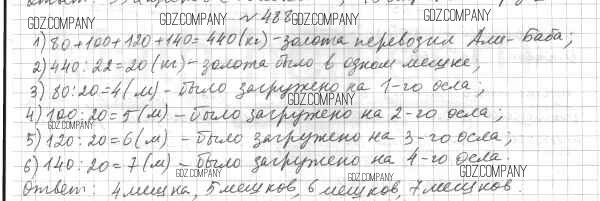 GDZ.COMPANY № 488 GDZ.COMPANY GDZ.COMPANY
1) 80+100+120+140=440(кг)-золота перевозил Али-Баба;
2) 440:22=20(кг)-золота было в одном мешке;
3) 80:20=4(м)-было загружено на 1-го осла;
GDZ.COMPANY
4) 100:20=5(м)-было загружено на 2-го осла;
GDZ.COMPANY
5) 120:20=6(м)-было загружено на 3-го осла;
6) 140:20=7(м)-было загружено на 4-го осла.
GDZ.COMPANY GDZ.COMPANY GDZ.COMPANY
Ответ: 4 мешка, 5 мешков, 6 мешков, 7 мешков.